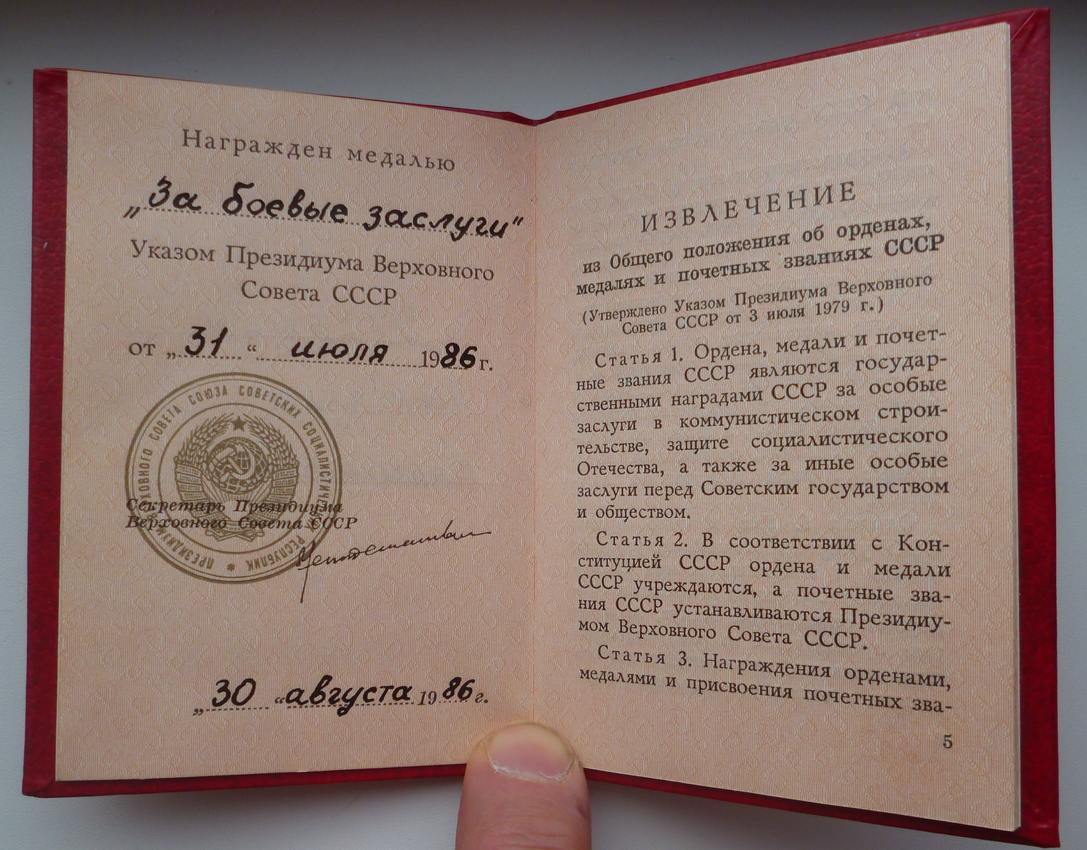 Награжден медалью
„За боевые заслуги"
Указом Президиума Верховного
Совета СССР
от „31“ июля 1986 г.
ПРЕЗИДИУМ ВЕРХОВНОГО СОВЕТА СОЮЗА СОВЕТСКИХ СОЦИАЛИСТИЧЕСКИХ РЕСПУБЛИК
Секретарь Президиума
Верховного Совета СССР
„30 “ августа 1986 г.
ИЗВЛЕЧЕНИЕ
из Общего положения об орденах,
медалях и почетных званиях СССР
(Утверждено Указом Президиума Верховного
Совета СССР от 3 июля 1979 г.)
Статья 1. Ордена, медали и почет-
ные звания СССР являются государ-
ственными наградами СССР за особые
заслуги в коммунистическом строи-
тельстве, защите социалистического
Отечества, а также за иные особые
заслуги перед Советским государством
и обществом.
Статья 2. В соответствии с Кон-
ституцией СССР ордена и медали
СССР учреждаются, а почетные зва-
ния СССР устанавливаются Президиу-
мом Верховного Совета СССР.
Статья 3. Награждения орденами,
медалями и присвоения почетных зва-
5